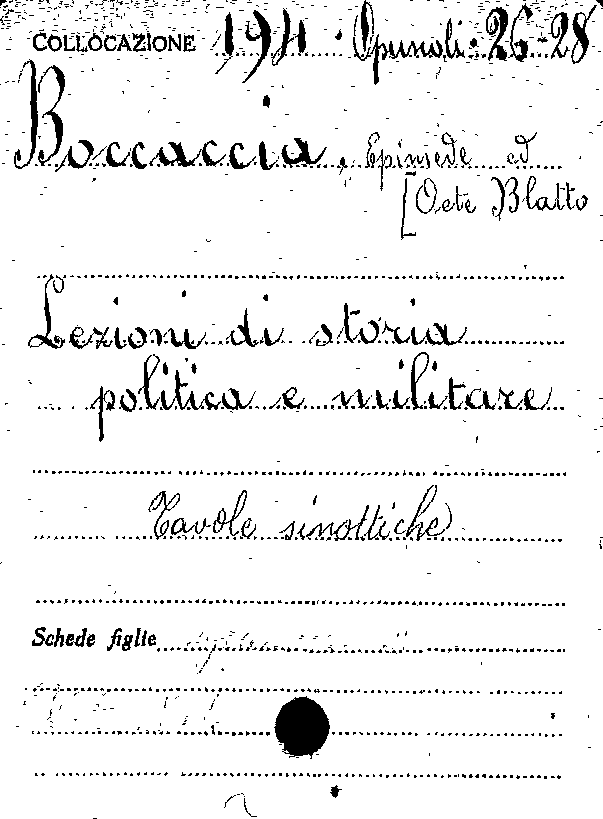 COLLOCAZIONE 194. Opuscoli. 26-28
Boccaccia, Epimede ed
[Oete Blatto
Lezioni di storia
politica e militare
Tavole sinottiche
Schede figlie